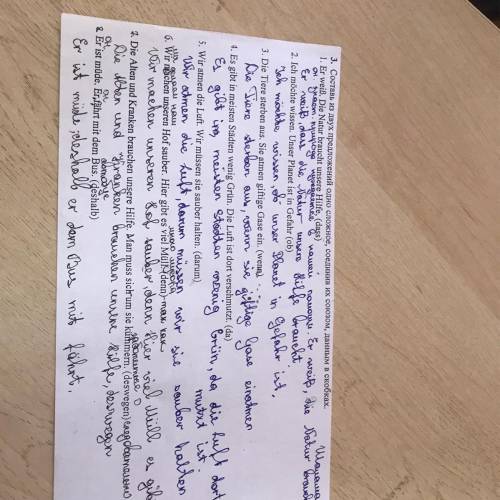 3. Составь из двух предложений одно сложное, соединив их союзом, данным в скобках.
1. Er weiß. Die Natur braucht unsere Hilfe. (dass)
Er weiß, dass die Natur unsere Hilfe braucht
2. Ich möchte wissen. Unser Planet ist in Gefahr (ob)
Ich möchte wissen, ob unser Planet in Gefahr ist.
3. Die Tiere sterben aus. Sie atmen giftige Gase ein. (wenn)
Die Tiere sterben aus, wenn sie giftige Gase einatmen
4. Es gibt in meisten Städten wenig Grün. Die Luft ist dort verschmutzt. (da)
Es gibt in meisten Städten wenig Grün, da die Luft dort
mutzt ist
5. Wir atmen die Luft. Wir müssen sie sauber halten. (darum)
Wir atmen die Luft, darum müssen wir sie sauber halten
6. Wir machen unseren Hof sauber. Hier gibt es viel Müll. (denn)
Wir machen unseren Hof sauber, denn hier viel Müll es gib
7. Die Alten und Kranken brauchen unsere Hilfe. Man muss sich um sie kümmern. (deswegen)
Die Alten und Kranken brauchen unsere Hilfe, deswegen
8. Er ist müde. Er fährt mit dem Bus. (deshalb)
Er ist müde, deshalb er dem Bus mit fährt.